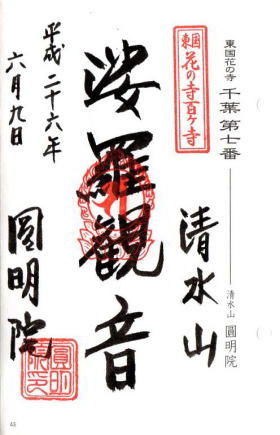 東国花の寺 千葉第七番 ―― 清水山 圓明院
東国
花の寺百ヶ寺
清水山
娑羅観音
平成二十六年
六月九日
圓明院
圓明
院印